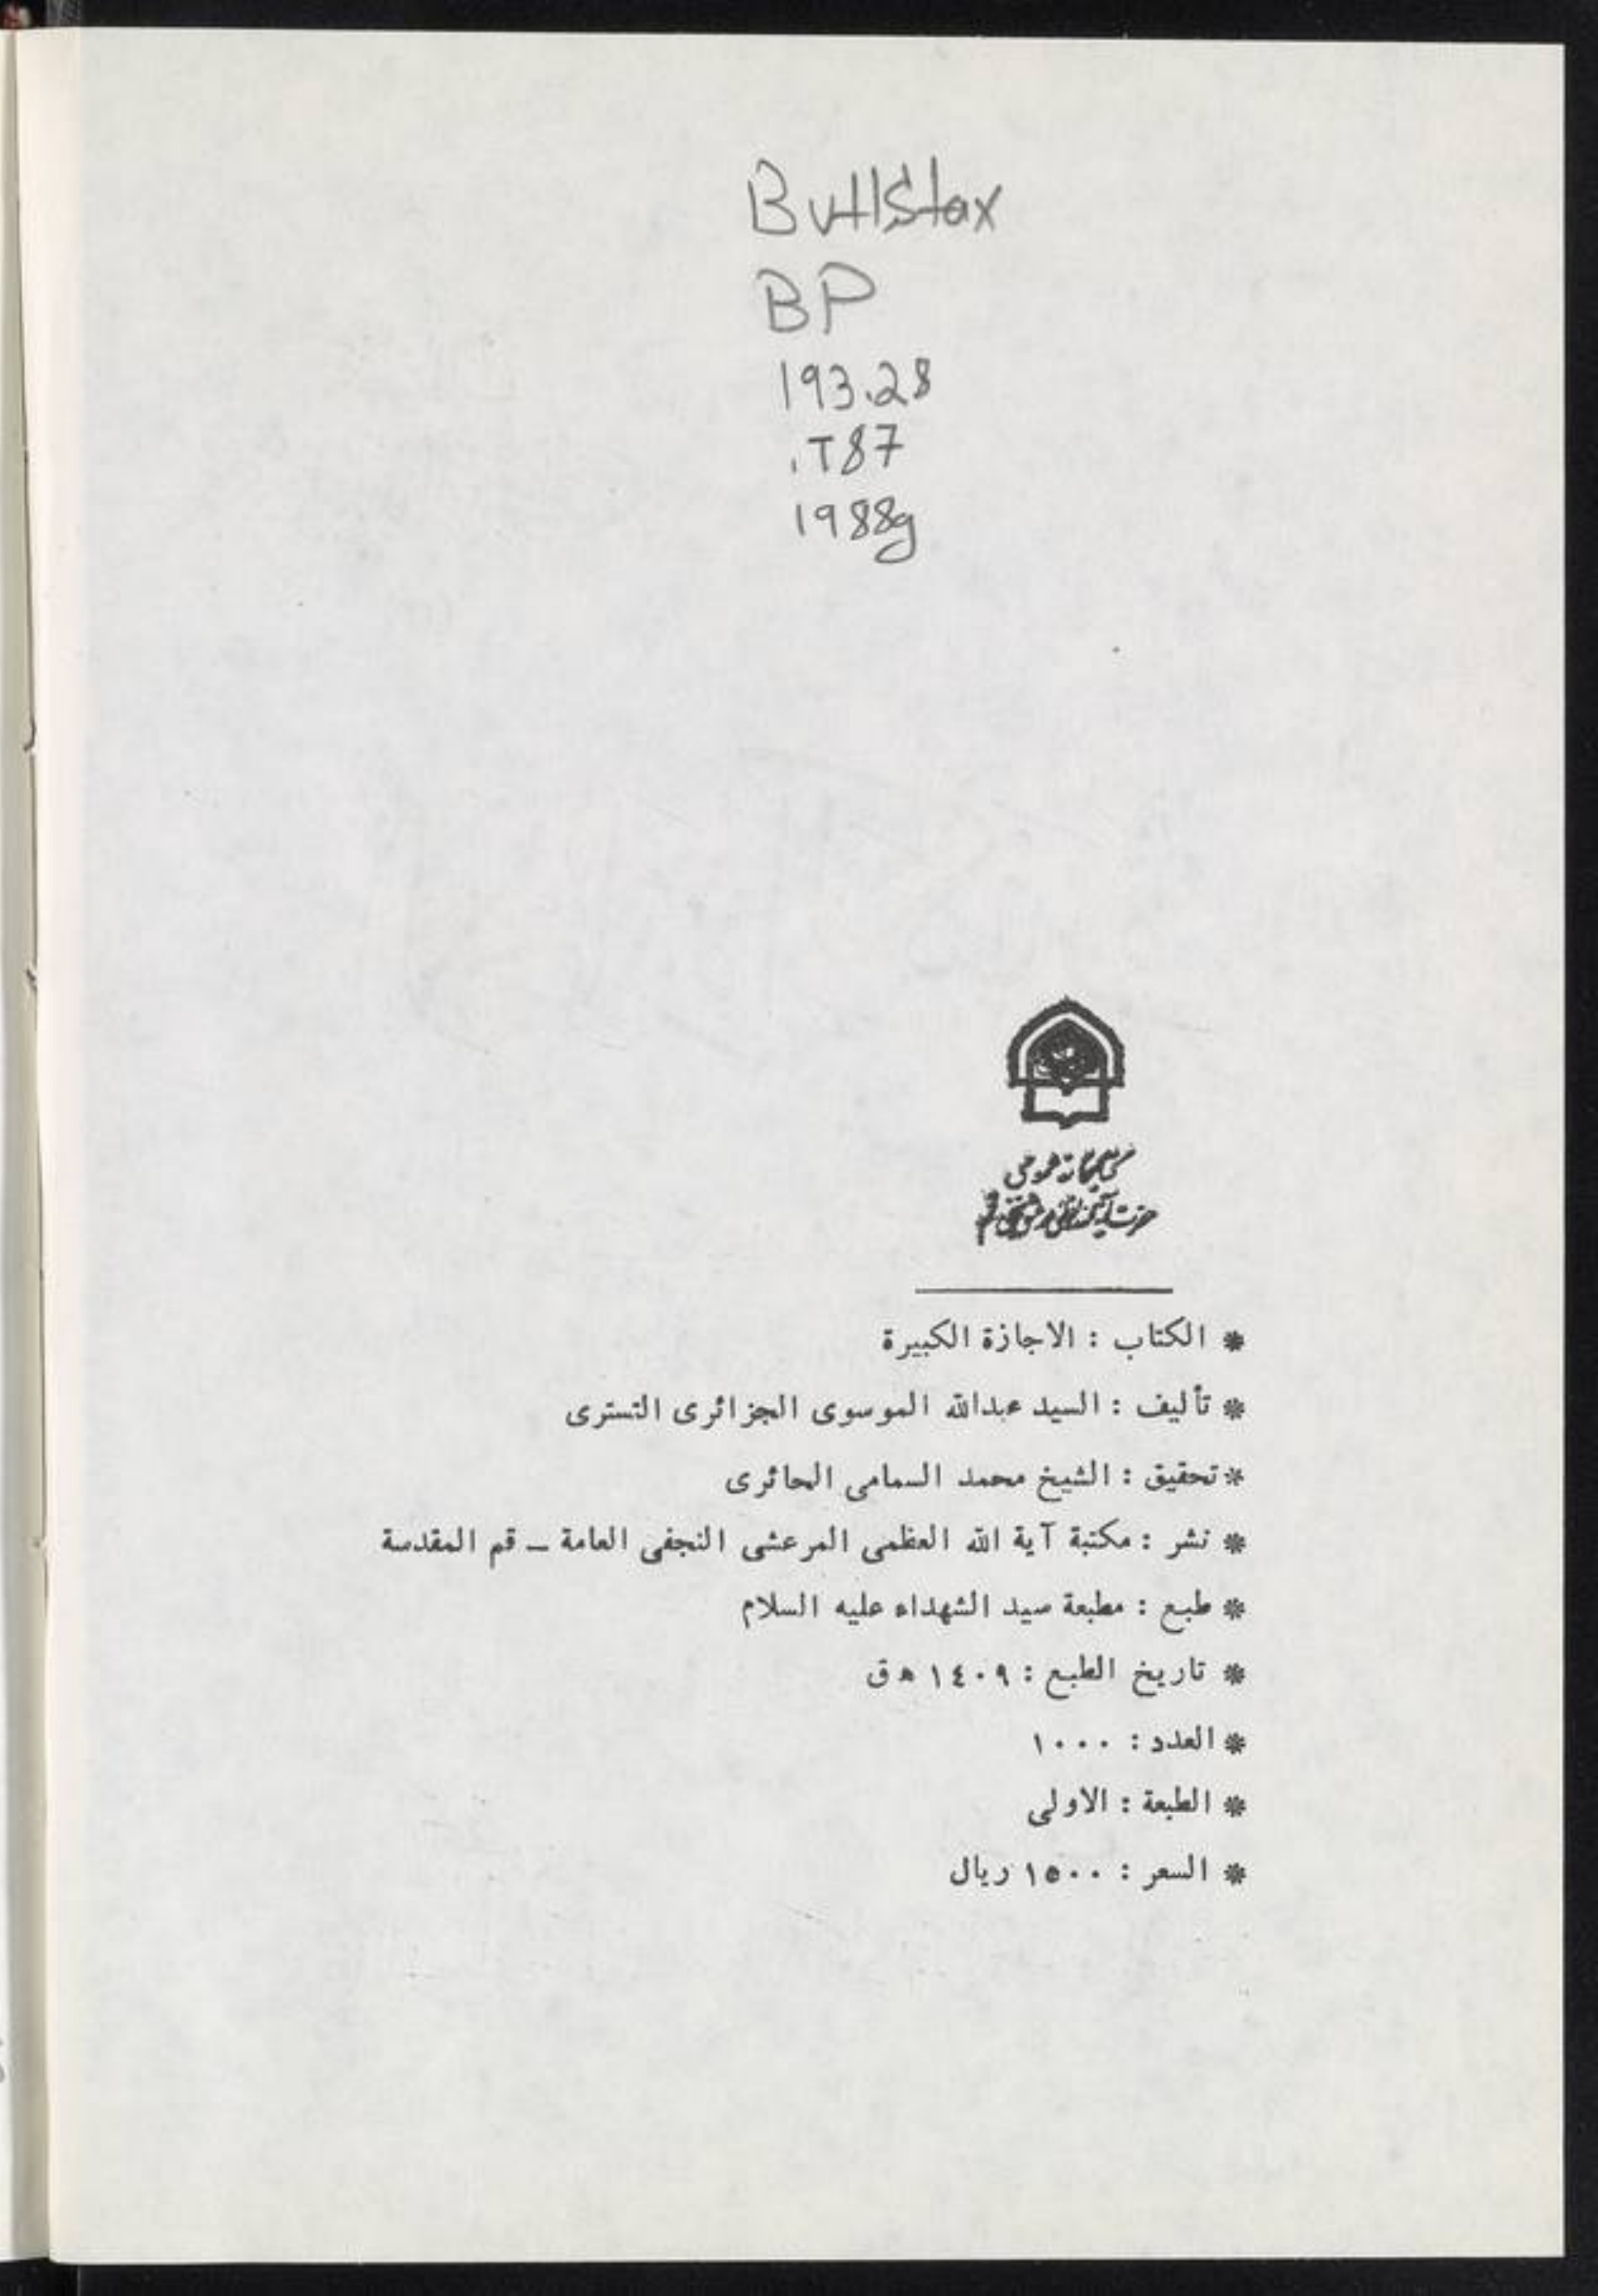 ButlStax
BP
193.28
.T87
1988g
* الكتاب : الاجازة الكبيرة
* تأليف : السيد عبدالله الموسوى الجزائرى التسترى
* تحقيق : الشيخ محمد السمامى الحائرى
* نشر : مكتبة آية الله العظمى المرعشى النجفى العامة ــ قم المقدسة
* طبع : مطبعة سيد الشهداء عليه السلام
* تاريخ الطبع : ١٤٠٩ ه ق
* العدد : ١٠٠٠
* الطبعة : الاولى
* السعر : ١٥٠٠ ريال